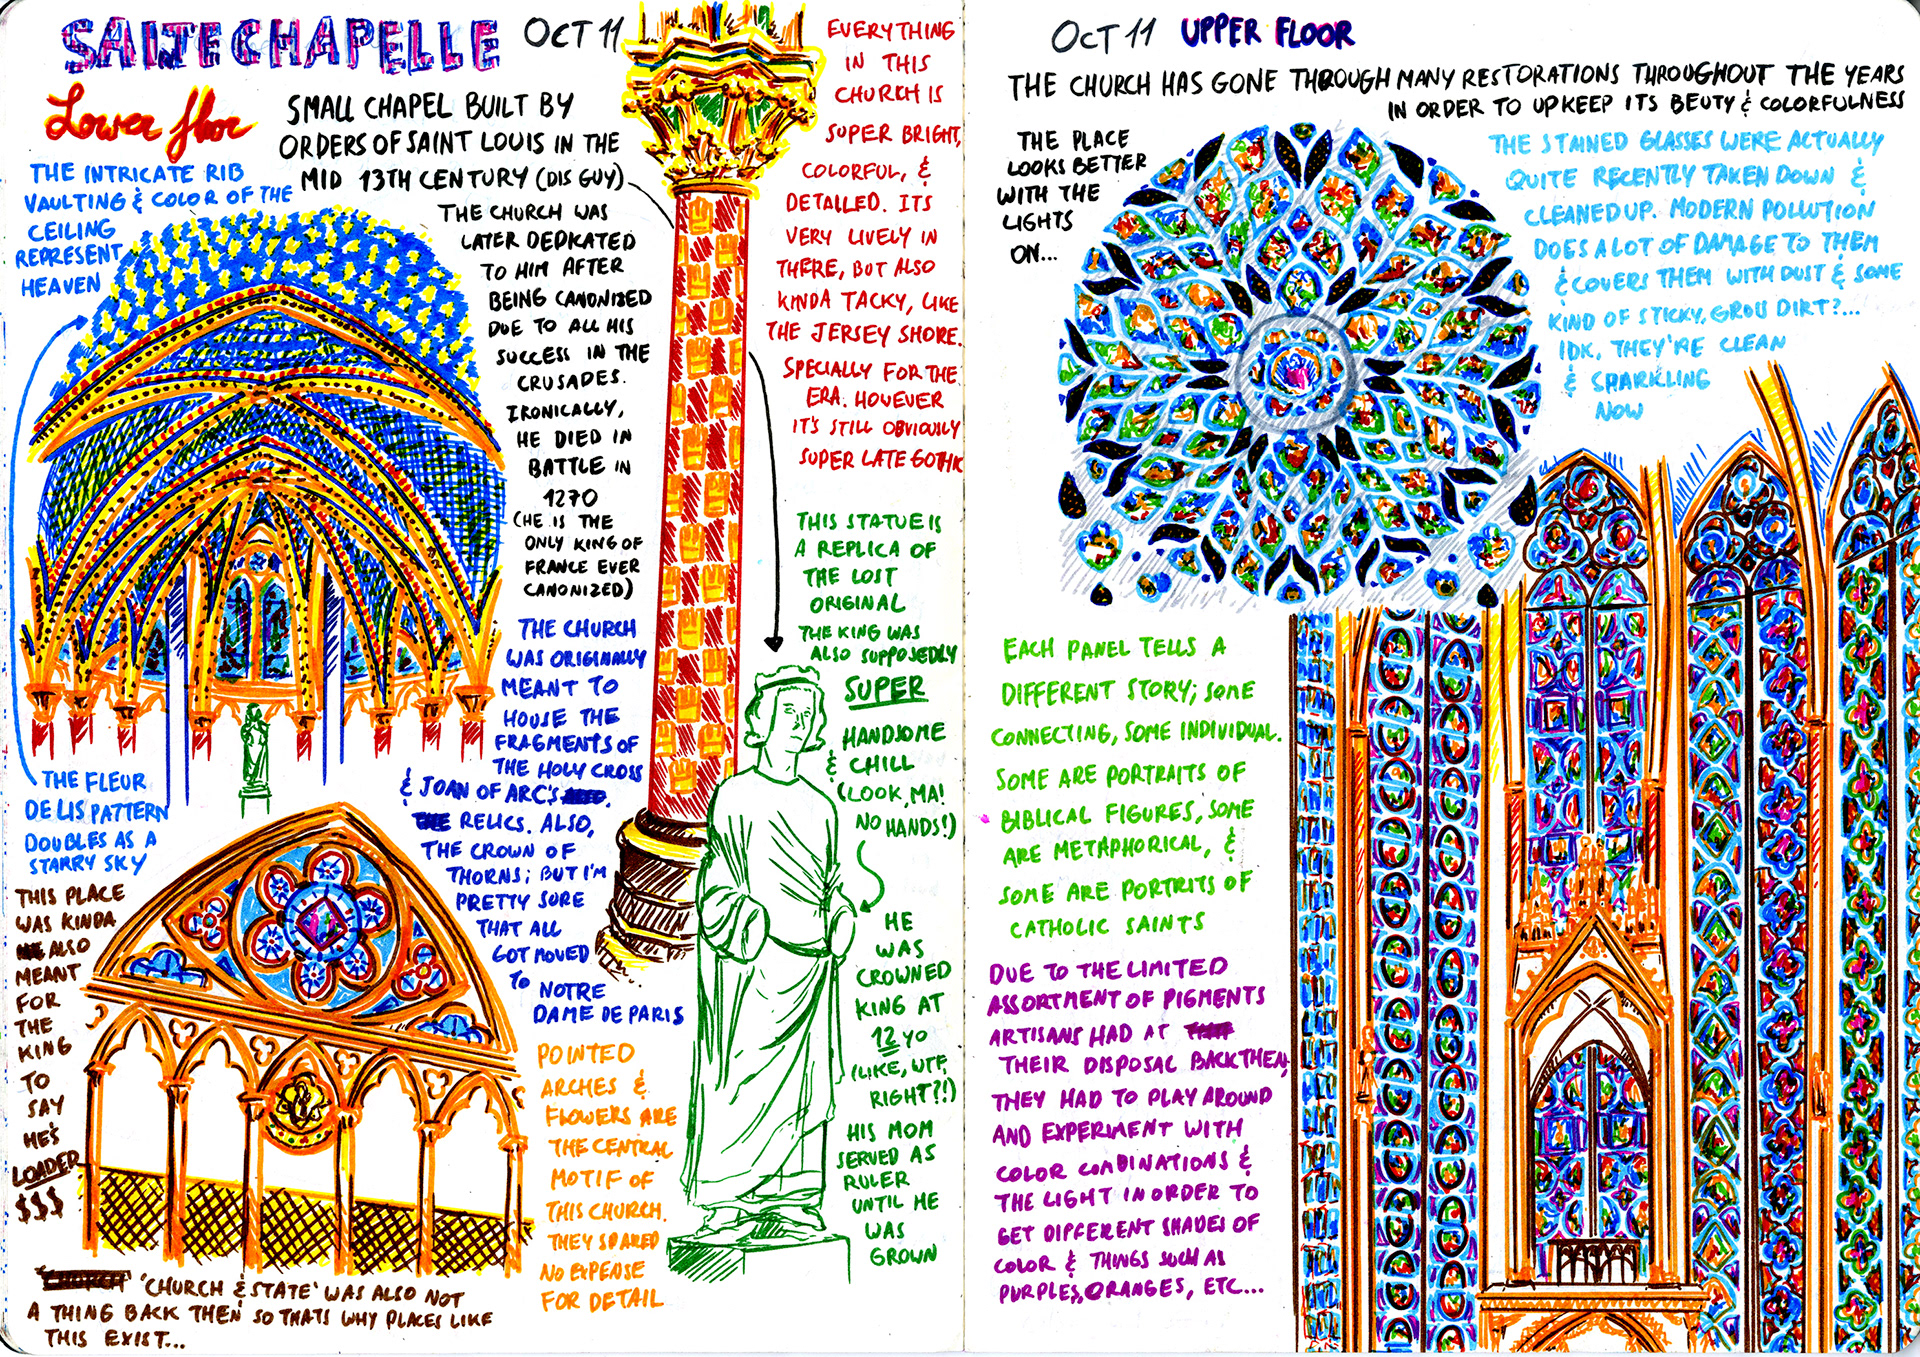 SAITE CHAPELLE
OCT 11
Lower floor
SMALL CHAPEL BUILT BY
ORDERS OF SAINT LOUIS IN THE
MID 13TH CENTURY (DIS GUY)
THE INTRICATE RIB
VAULTING & COLOR OF THE
CEILING
REPRESENT
HEAVEN
THE CHURCH WAS
LATER DEDKATED
TO HIM AFTER
BEING CANONIZED
DUE TO ALL HIS
SUCCESS IN THE
CRUSADES.
IRONICALLY,
HE DIED IN
BATTLE IN
1270
(HE IS THE
ONLY KING OF
FRANCE EVER
CANONIZED)
THE CHURCH
WAS ORIGINALLY
MEANT TO
HOUSE THE
FRAGMENTS OF
THE HOLY CROSS
& JOAN OF ARC'S
RELICS. ALSO,
THE CROWN OF
THORNS; BUT I'M
PRETTY SURE
THAT ALL
GOT MOVED
TO NOTRE
DAME DE PARIS
THE FLEUR
DE LIS PATTERN
DOUBLES AS A
STARRY SKY
THIS PLACE
WAS KINDA
ALSO
MEANT
FOR
THE
KING
TO
SAY
HE'S
LOADED
$$$
CHURCH 'CHURCH & STATE' WAS ALSO NOT
A THING BACK THEN SO THATS WHY PLACES LIKE
THIS EXIST...
POINTED
ARCHES &
FLOWERS ARE
THE CENTRAL
MOTIF OF
THIS CHURCH.
THEY SPARED
NO EXPENSE
FOR DETAIL
EVERYTHING
IN THIS
CHURCH IS
SUPER BRIGHT,
COLORFUL, &
DETAILED. ITS
VERY LIVELY IN
THERE, BUT ALSO
KINDA TACKY, LIKE
THE JERSEY SHORE.
SPECIALLY FOR THE
ERA. HOWEVER
IT'S STILL OBVIOUSLY
SUPER LATE GOTHIC
THIS STATUE IS
A REPLICA OF
THE LOST
ORIGINAL
THE KING WAS
ALSO SUPPOSEDLY
SUPER
HANDSOME
& CHILL
(LOOK, MA!
NO HANDS!)
HE
WAS
CROWNED
KING AT
12 YO
(LIKE, WTF,
RIGHT?!)
HIS MOM
SERVED AS
RULER
UNTIL HE
WAS
GROWN
OCT 11 UPPER FLOOR
THE CHURCH HAS GONE THROUGH MANY RESTORATIONS THROUGHOUT THE YEARS
IN ORDER TO UPKEEP ITS BEUTY & COLORFULNESS
THE PLACE
LOOKS BETTER
WITH THE
LIGHTS
ON...
THE STAINED GLASSES WERE ACTUALLY
QUITE RECENTLY TAKEN DOWN &
CLEANED UP. MODERN POLLUTION
DOES A LOT OF DAMAGE TO THEM
& COVERS THEM WITH DUST & SOME
KIND OF STICKY, GROSS DIRT?...
IDK, THEY'RE CLEAN
& SPARKLING
NOW
EACH PANEL TELLS A
DIFFERENT STORY; SOME
CONNECTING, SOME INDIVIDUAL.
SOME ARE PORTRAITS OF
BIBLICAL FIGURES, SOME
ARE METAPHORICAL, &
SOME ARE PORTRITS OF
CATHOLIC SAINTS
DUE TO THE LIMITED
ASSORTMENT OF PIGMENTS
ARTISANS HAD AT
THEIR DISPOSAL BACK THEN,
THEY HAD TO PLAY AROUND
AND EXPERIMENT WITH
COLOR COMBINATIONS &
THE LIGHT IN ORDER TO
GET DIFFERENT SHADES OF
COLOR & THINGS SUCH AS
PURPLES, ORANGES, ETC...